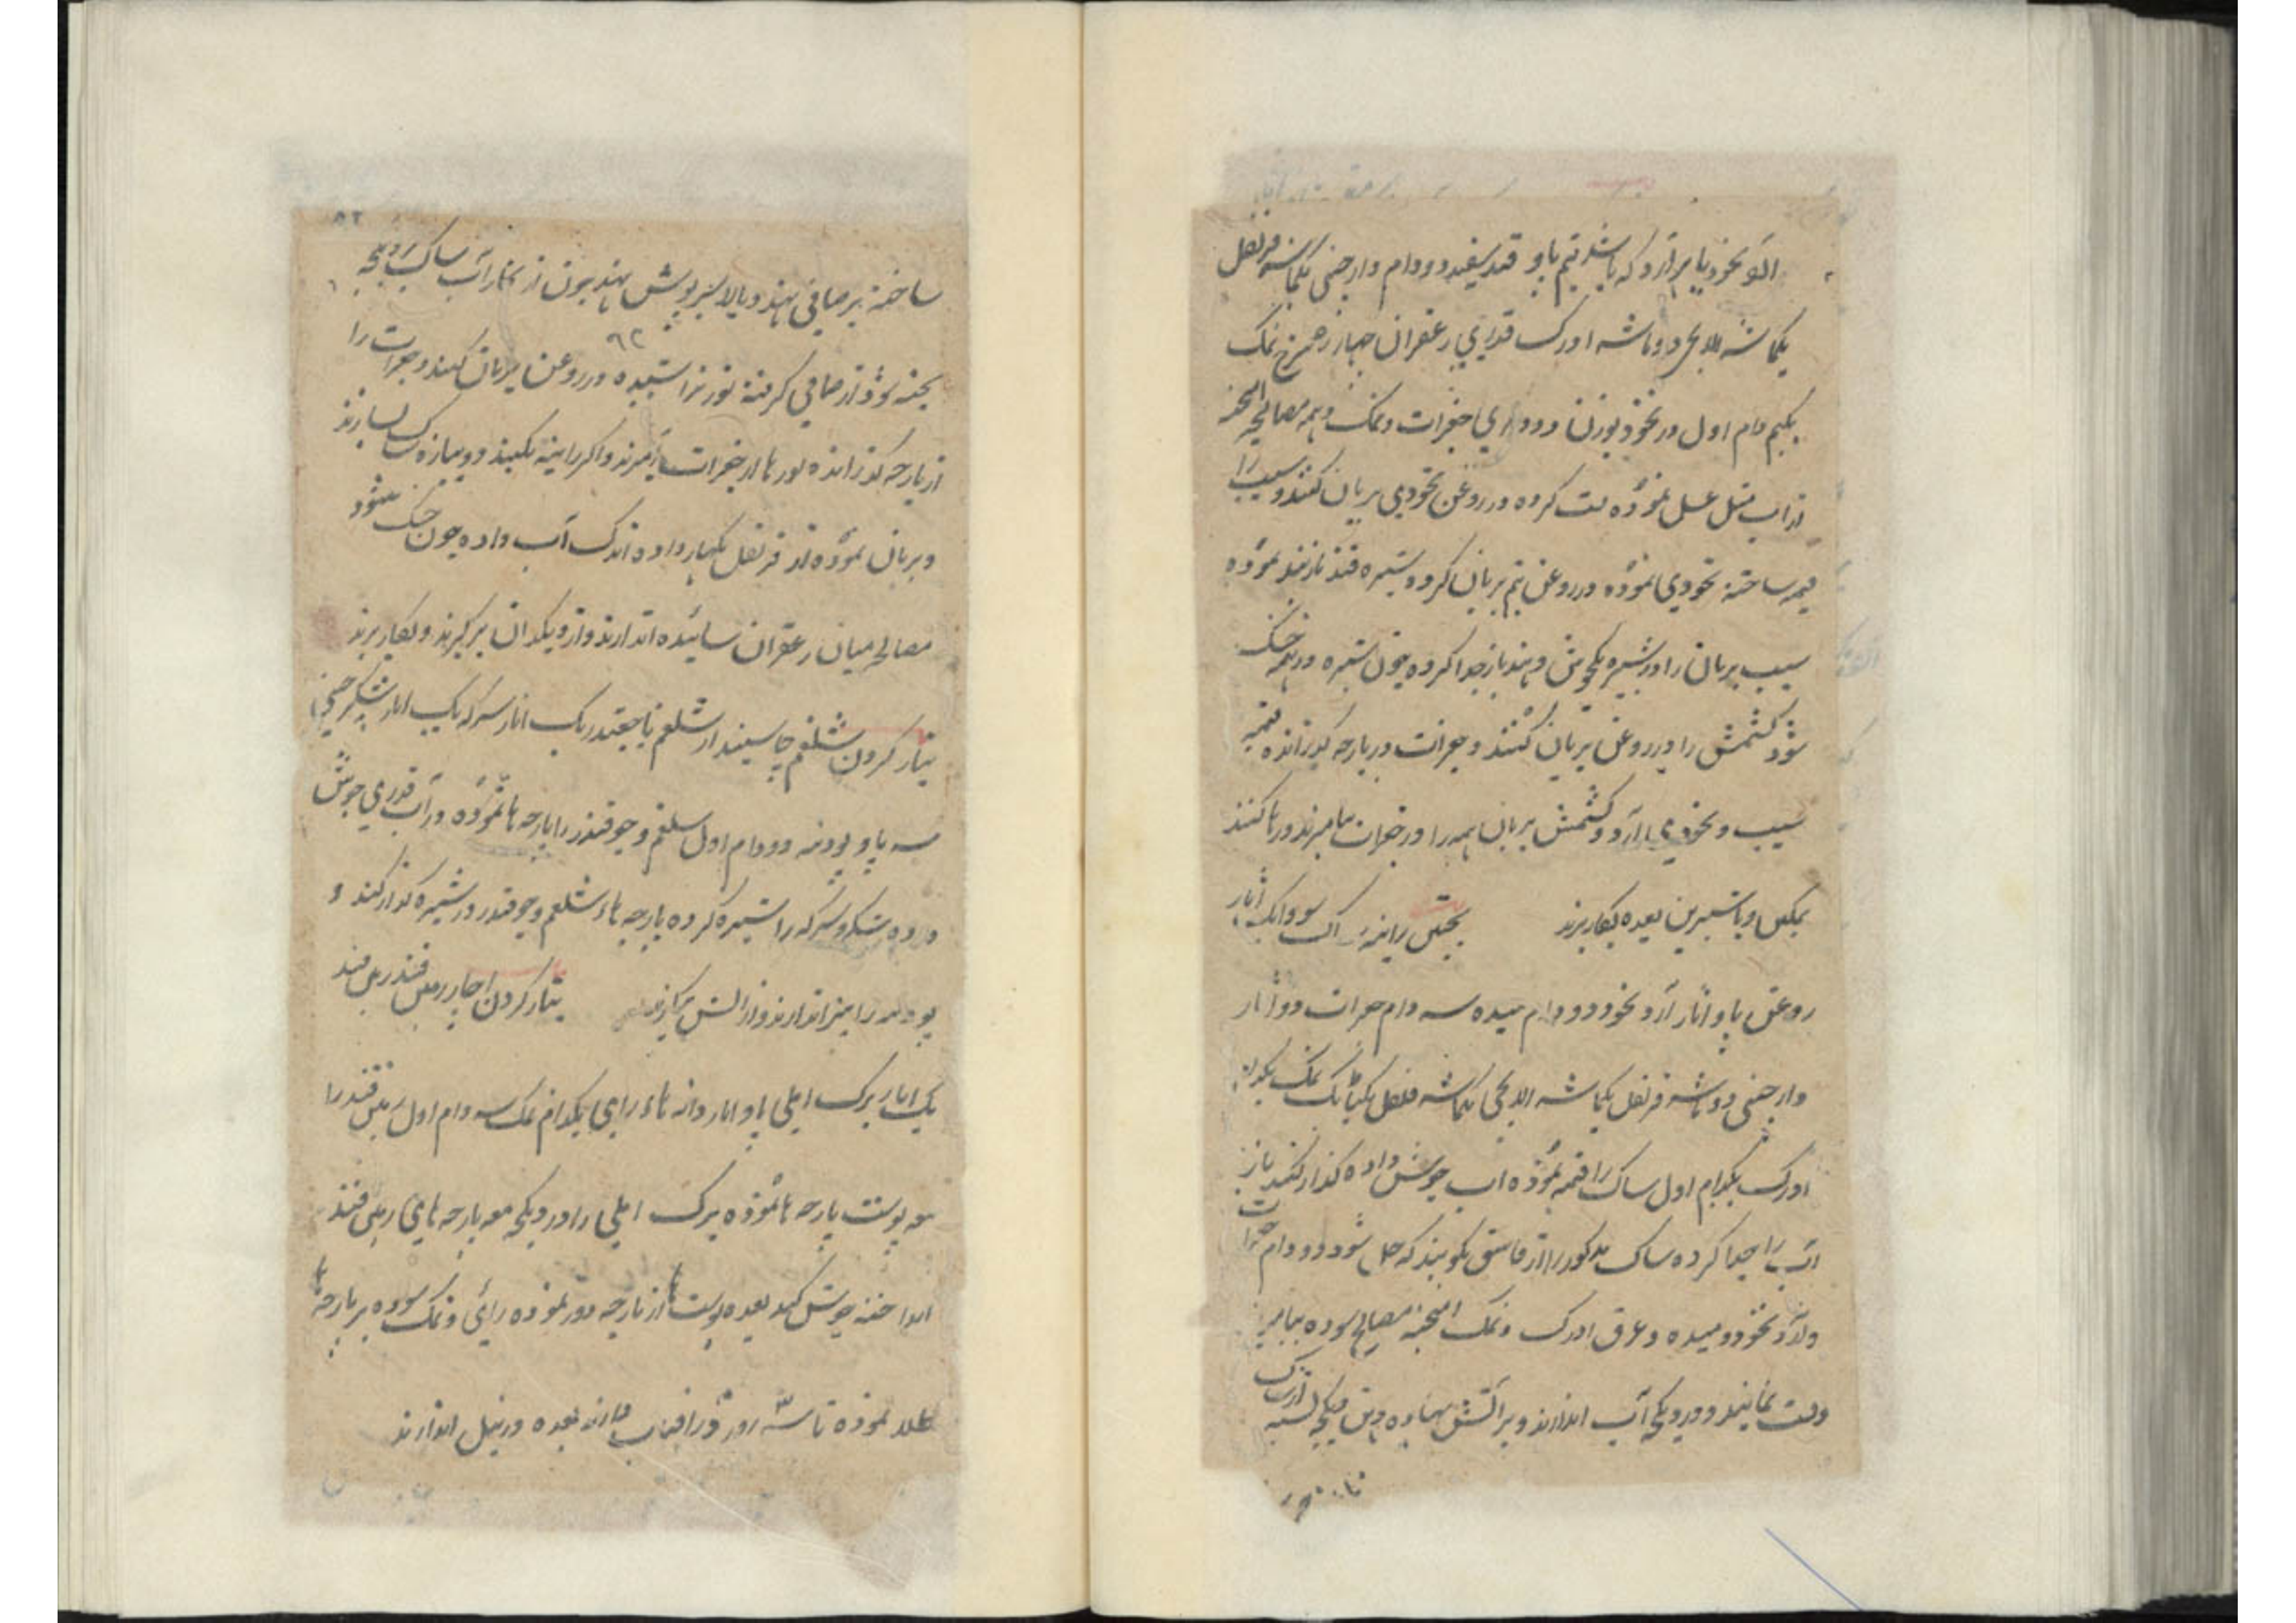 آرد نخود یا برنج آرد که باشد نیم پاو قند سفید دو دام دارچینی یکماشه قرنفل
یکماشه الایچی دو ماشه ادرک قدری زعفران چهار سرخ نمک
یکنیم دام اول در نخود بوزن دو دام جغرات و نمک و همه مصالح آمیخته
از آب مثل عسل نموده لت کرده در روغن نخودی بریان کنند و سیب را
قیمه ساخته نخودی نموده در روغن نیم بریان کرده و شیره قند نموده
سیب بریان را در شیره یکجوش دهند باز جدا کرده چون شیره در همه خشک
شود کشمش را در روغن بریان کنند و جغرات در پارچه گذرانده قیمه
سیب و نخودی آرد و کشمش بریان همه را در جغرات بیامیزند و رها کنند
نمکین و یا شیرین بعده بکار برند پختن راینه ساک سووا یک آثار
روغن پاو آثار آرد نخود دو دام میده سه دام جغرات دو آثار
دارچینی دو ماشه قرنفل یکماشه الایچی یکماشه فلفل یکتانک نمک یکدام
ادرک یکدام اول ساک را قیمه نموده آب جوش داده گذار کنند باز
آب را جدا کرده ساک مذکور را از قاشق بکوبند که حل شود دو دام جغرات
و آرد نخود و میده و عرق ادرک و نمک آمیخته مصالح سوده بیامیزند
ولت نمایند و در دیگچه آب اندازند و بر آتش نهاده دهن دیگچه بسته
۸۲
ساخته بر صافی نهند و بالا سرپوش نهند چون از بخار آب ساک
۶۲
پخته شود از صافی گرفته لوز تراشیده در روغن بریان کنند و جغرات را
از پارچه گذرانده لوزها در جغرات بیامیزند و اگر راینه نکنند دوپیازه ساک بسازند
و بریان نموده از قرنفل بگهار داده اندک آب داده چون خشک شود
مصالح میان زعفران سائیده اندازند و از دیگدان برگیرند و بکار برند
تیار کردن شلغم چاشنیدار شلغم با چقندر یک آثار سرکه یک آثار شکر
سه پاو پودینه دو دام اول شلغم و چوقندر را پارچه ها نموده در آب قدری جوش
داده شکر و سرکه را شیره کرده پارچه هاء شلغم و چوقندر در شیره گذار کنند و
پودینه را نیز اندازند و از آتش برگیرند تیار کردن اچار زمین قند زمین قند
یک آثار برگ املی پاو آثار دانه هاء رای یکدام نمک سه دام اول زمین قند را
معه پوست پارچه ها نموده برگ املی را در دیگچه معه پارچه های زمین قند
انداخته جوش کنند بعده پوست ها از پارچه دور نموده رائی و نمک سوده بر پارچه ها
طلا نموده تا سه روز در آفتاب دارند بعده در تیل اندازند